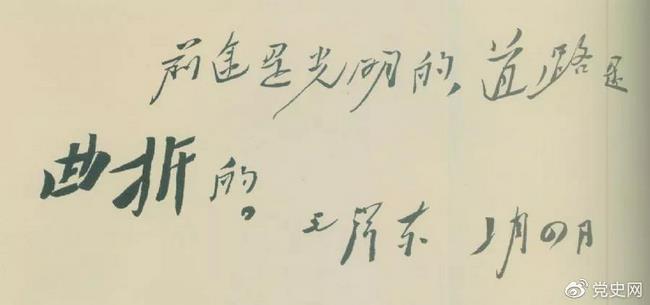 前途是光明的，道路是
曲折的。
毛泽东 1月四日
党史网